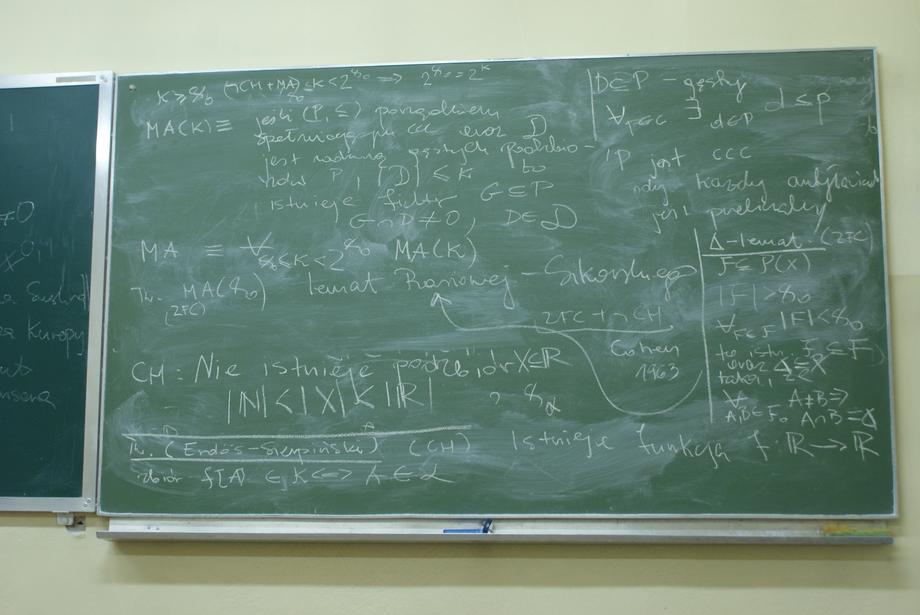 K ≥ ℵ₀ (¬CH + MA) ℵ₀ ≤ K < 2^ℵ₀ ⟹ 2^ℵ₀ = 2^K
MA(K) ≡ jeśli (P, ≤) porządkiem
spełniającym ccc oraz D
jest rodziną gęstych podzbio-
rów P, |D| ≤ K to
istnieje filtr G ⊆ P
G ∩ D ≠ 0, D ∈ D
MA ≡ ∀ ℵ₀ ≤ K < 2^ℵ₀ MA(K)
Tw. MA(ℵ₀) lemat Rasiowej - Sikorskiego
(ZFC)
ZFC + ¬CH
Cohen
1963
CH: Nie istnieje podzbiór X ⊆ ℝ
|ℕ| < |X| < |ℝ| ℵ_α
Tw. (Erdös-Sierpiński) (CH) Istnieje funkcja f: ℝ → ℝ
zbiór f[A] ∈ K ⟺ A ∈ L
D ⊆ P - gęsty
∀ p∈P ∃ d∈D d ≤ p
P jest ccc
gdy każdy antyłańcuch
jest przeliczalny
Δ-lemat. (ZFC)
F ⊆ P(X)
|F| > ℵ₀
∀ F∈F |F| < ℵ₀
to istn. F₀ ⊆ F
oraz Δ ⊆ X
takie, że
∀ A,B∈F₀ A ≠ B ⟹
A ∩ B = Δ
≠ 0
Kuropy